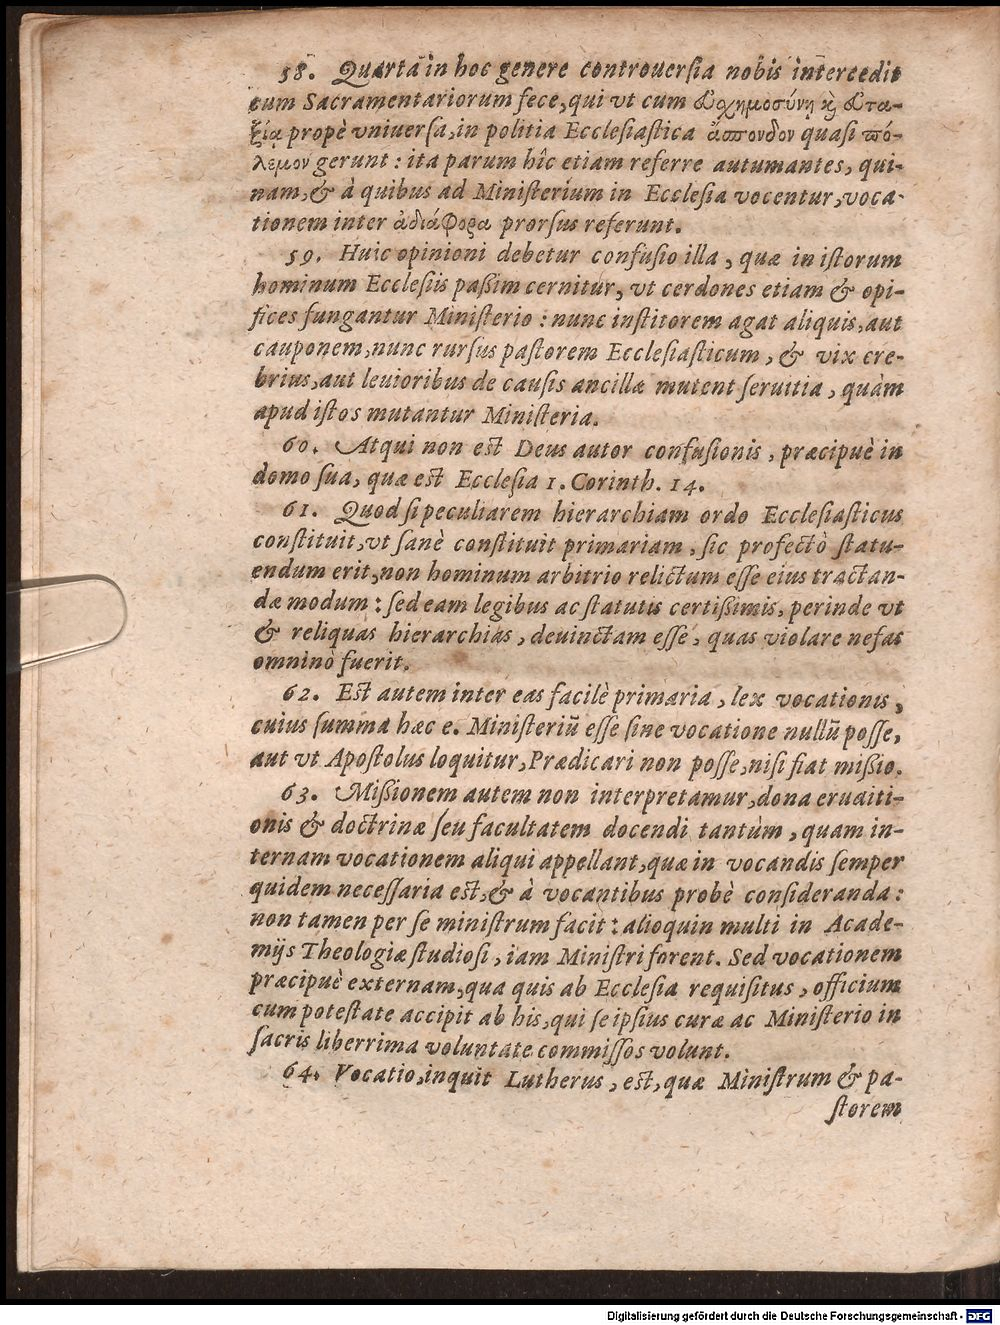 58. Quarta in hoc genere controuersia nobis intercedit
cum Sacramentariorum fece, qui vt cum εὐσχημοσύνῃ καὶ εὐτα-
ξίᾳ propè vniuersa, in politia Ecclesiastica ἄσπονδον quasi πό-
λεμον gerunt: ita parum hîc etiam referre autumantes, qui-
nam, & à quibus ad Ministerium in Ecclesia vocentur, voca-
tionem inter ἀδιάφορα prorsus referunt.
59. Huic opinioni debetur confusio illa, quæ in istorum
hominum Ecclesiis paßim cernitur, vt cerdones etiam & opi-
fices fungantur Ministerio: nunc institorem agat aliquis, aut
cauponem, nunc rursus pastorem Ecclesiasticum, & vix cre-
brius, aut leuioribus de causis ancillæ mutent seruitia, quàm
apud istos mutantur Ministeria.
60. Atqui non est Deus autor confusionis, præcipuè in
domo sua, quæ est Ecclesia 1. Corinth. 14.
61. Quod si peculiarem hierarchiam ordo Ecclesiasticus
constituit, vt sanè constituit primariam, sic profectò statu-
endum erit, non hominum arbitrio relictum esse eius tractan-
dæ modum: sed eam legibus ac statutis certißimis, perinde vt
& reliquas hierarchias, deuinctam esse, quas violare nefas
omninò fuerit.
62. Est autem inter eas facilè primaria, lex vocationis,
cuius summa hæc e. Ministeriũ esse sine vocatione nullũ posse,
aut vt Apostolus loquitur, Prædicari non posse, nisi fiat mißio.
63. Mißionem autem non interpretamur, dona eruditi-
onis & doctrinæ seu facultatem docendi tantùm, quam in-
ternam vocationem aliqui appellant, quæ in vocandis semper
quidem necessaria est, & à vocantibus probè consideranda:
non tamen per se ministrum facit: alioquin multi in Acade-
mijs Theologiæ studiosi, iam Ministri forent. Sed vocationem
præcipuè externam, qua quis ab Ecclesia requisitus, officium
cum potestate accipit ab his, qui se ipsius curæ ac Ministerio in
sacris liberrima voluntate commissos volunt.
64. Vocatio, inquit Lutherus, est, quæ Ministrum & pa-
storem
Digitalisierung gefördert durch die Deutsche Forschungsgemeinschaft - DFG